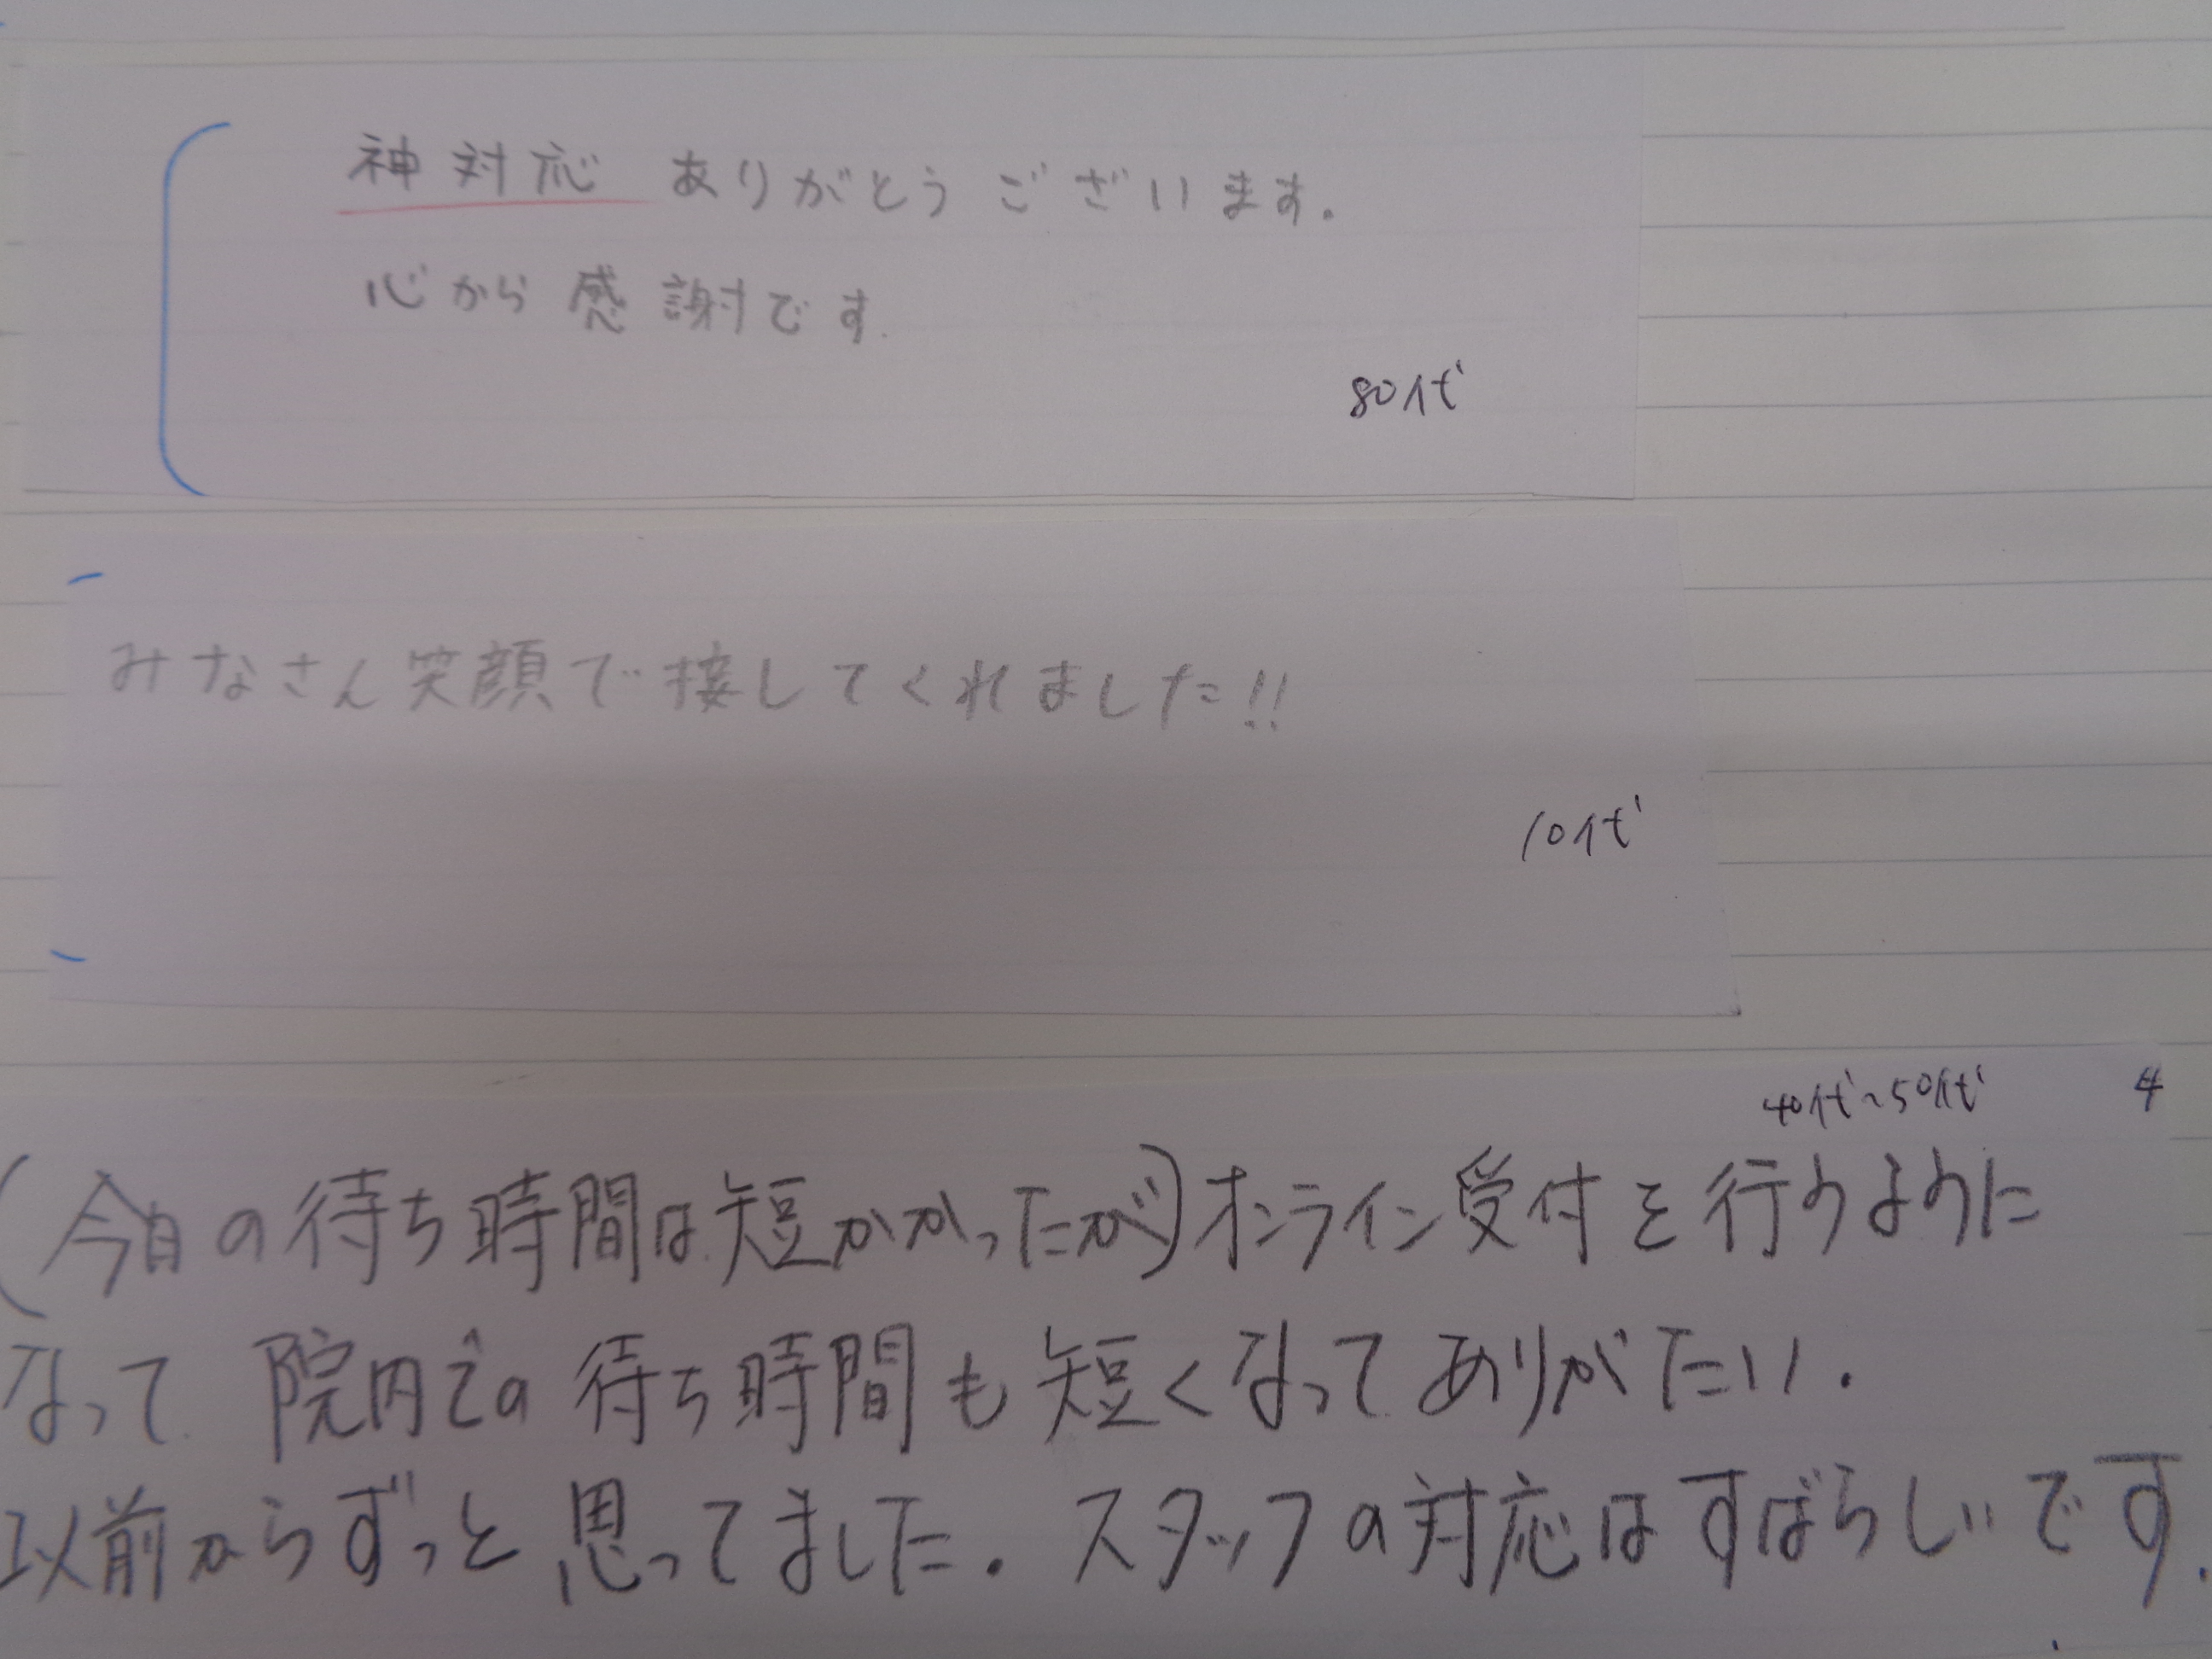 神対応ありがとうございます.
心から感謝です.
80代
みなさん笑顔で接してくれました!!
10代
40代~50代 4
(今日の待ち時間は短かかったが)オンライン受付を行うように
なって 院内での待ち時間も短くなってありがたい.
以前からずっと思ってました. スタッフの対応はすばらしいです.